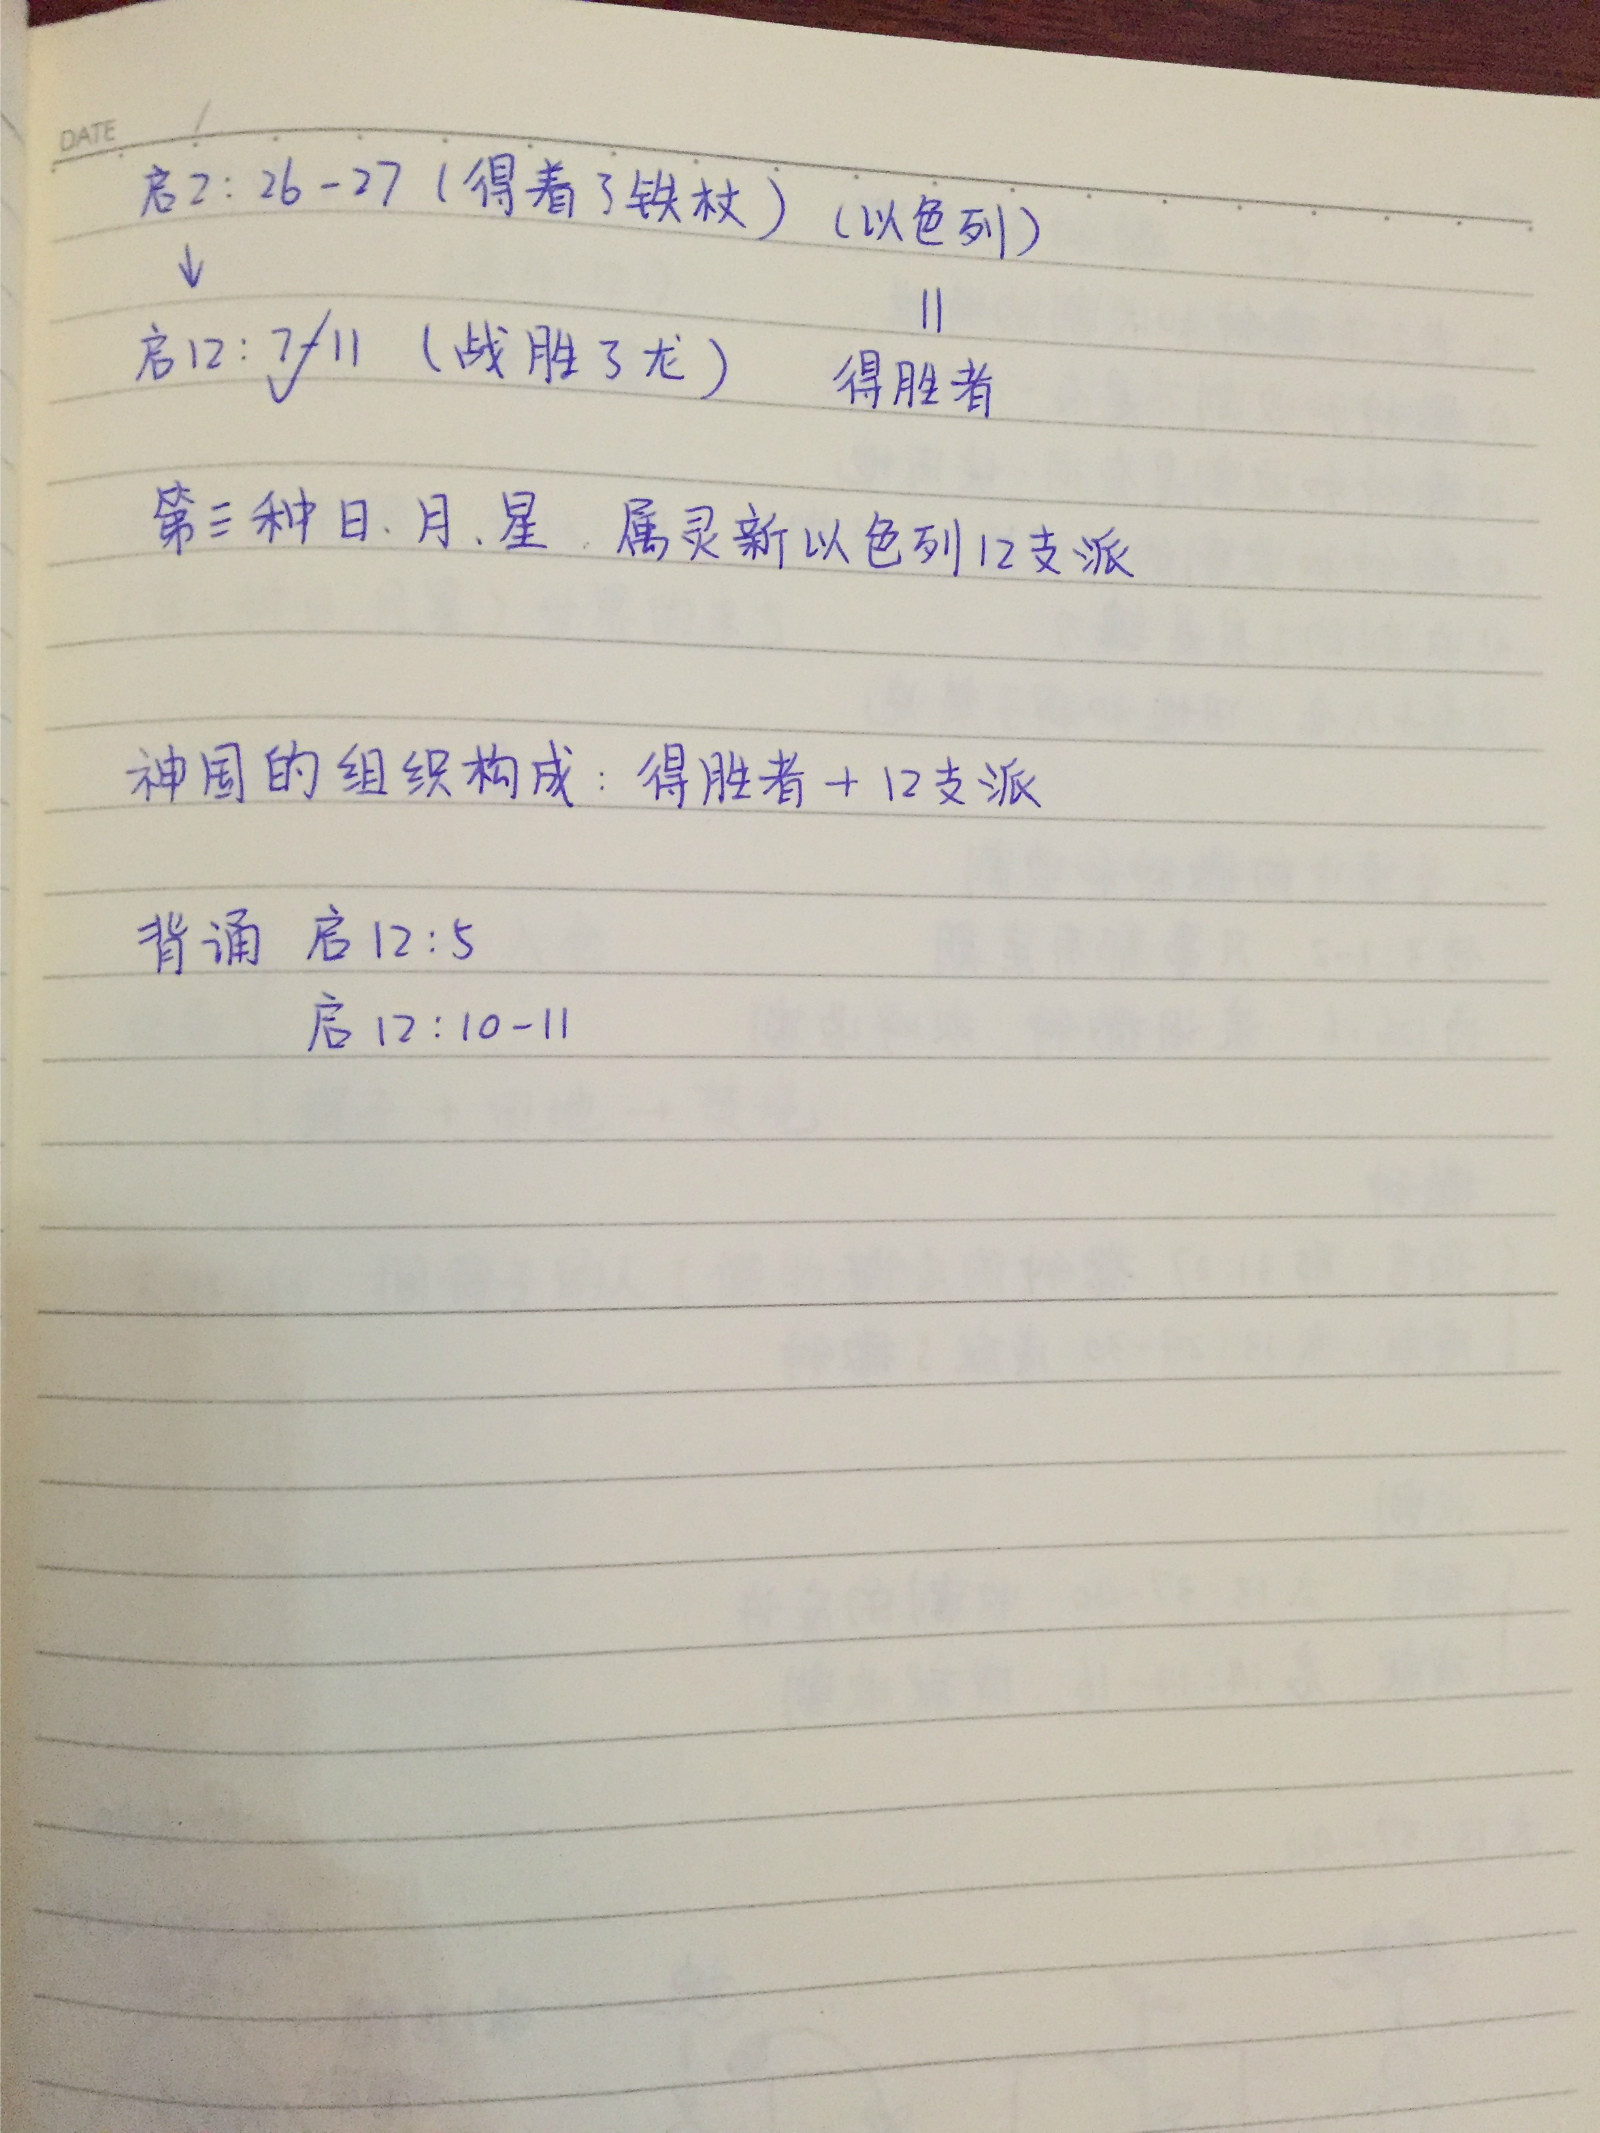 DATE /
启2:26-27(得着了铁杖) (以色列)
↓ 〢
启12:7-11 (战胜了龙) 得胜者
第三种日、月、星. 属灵新以色列12支派
神国的组织构成:得胜者+12支派
背诵 启12:5
启12:10-11